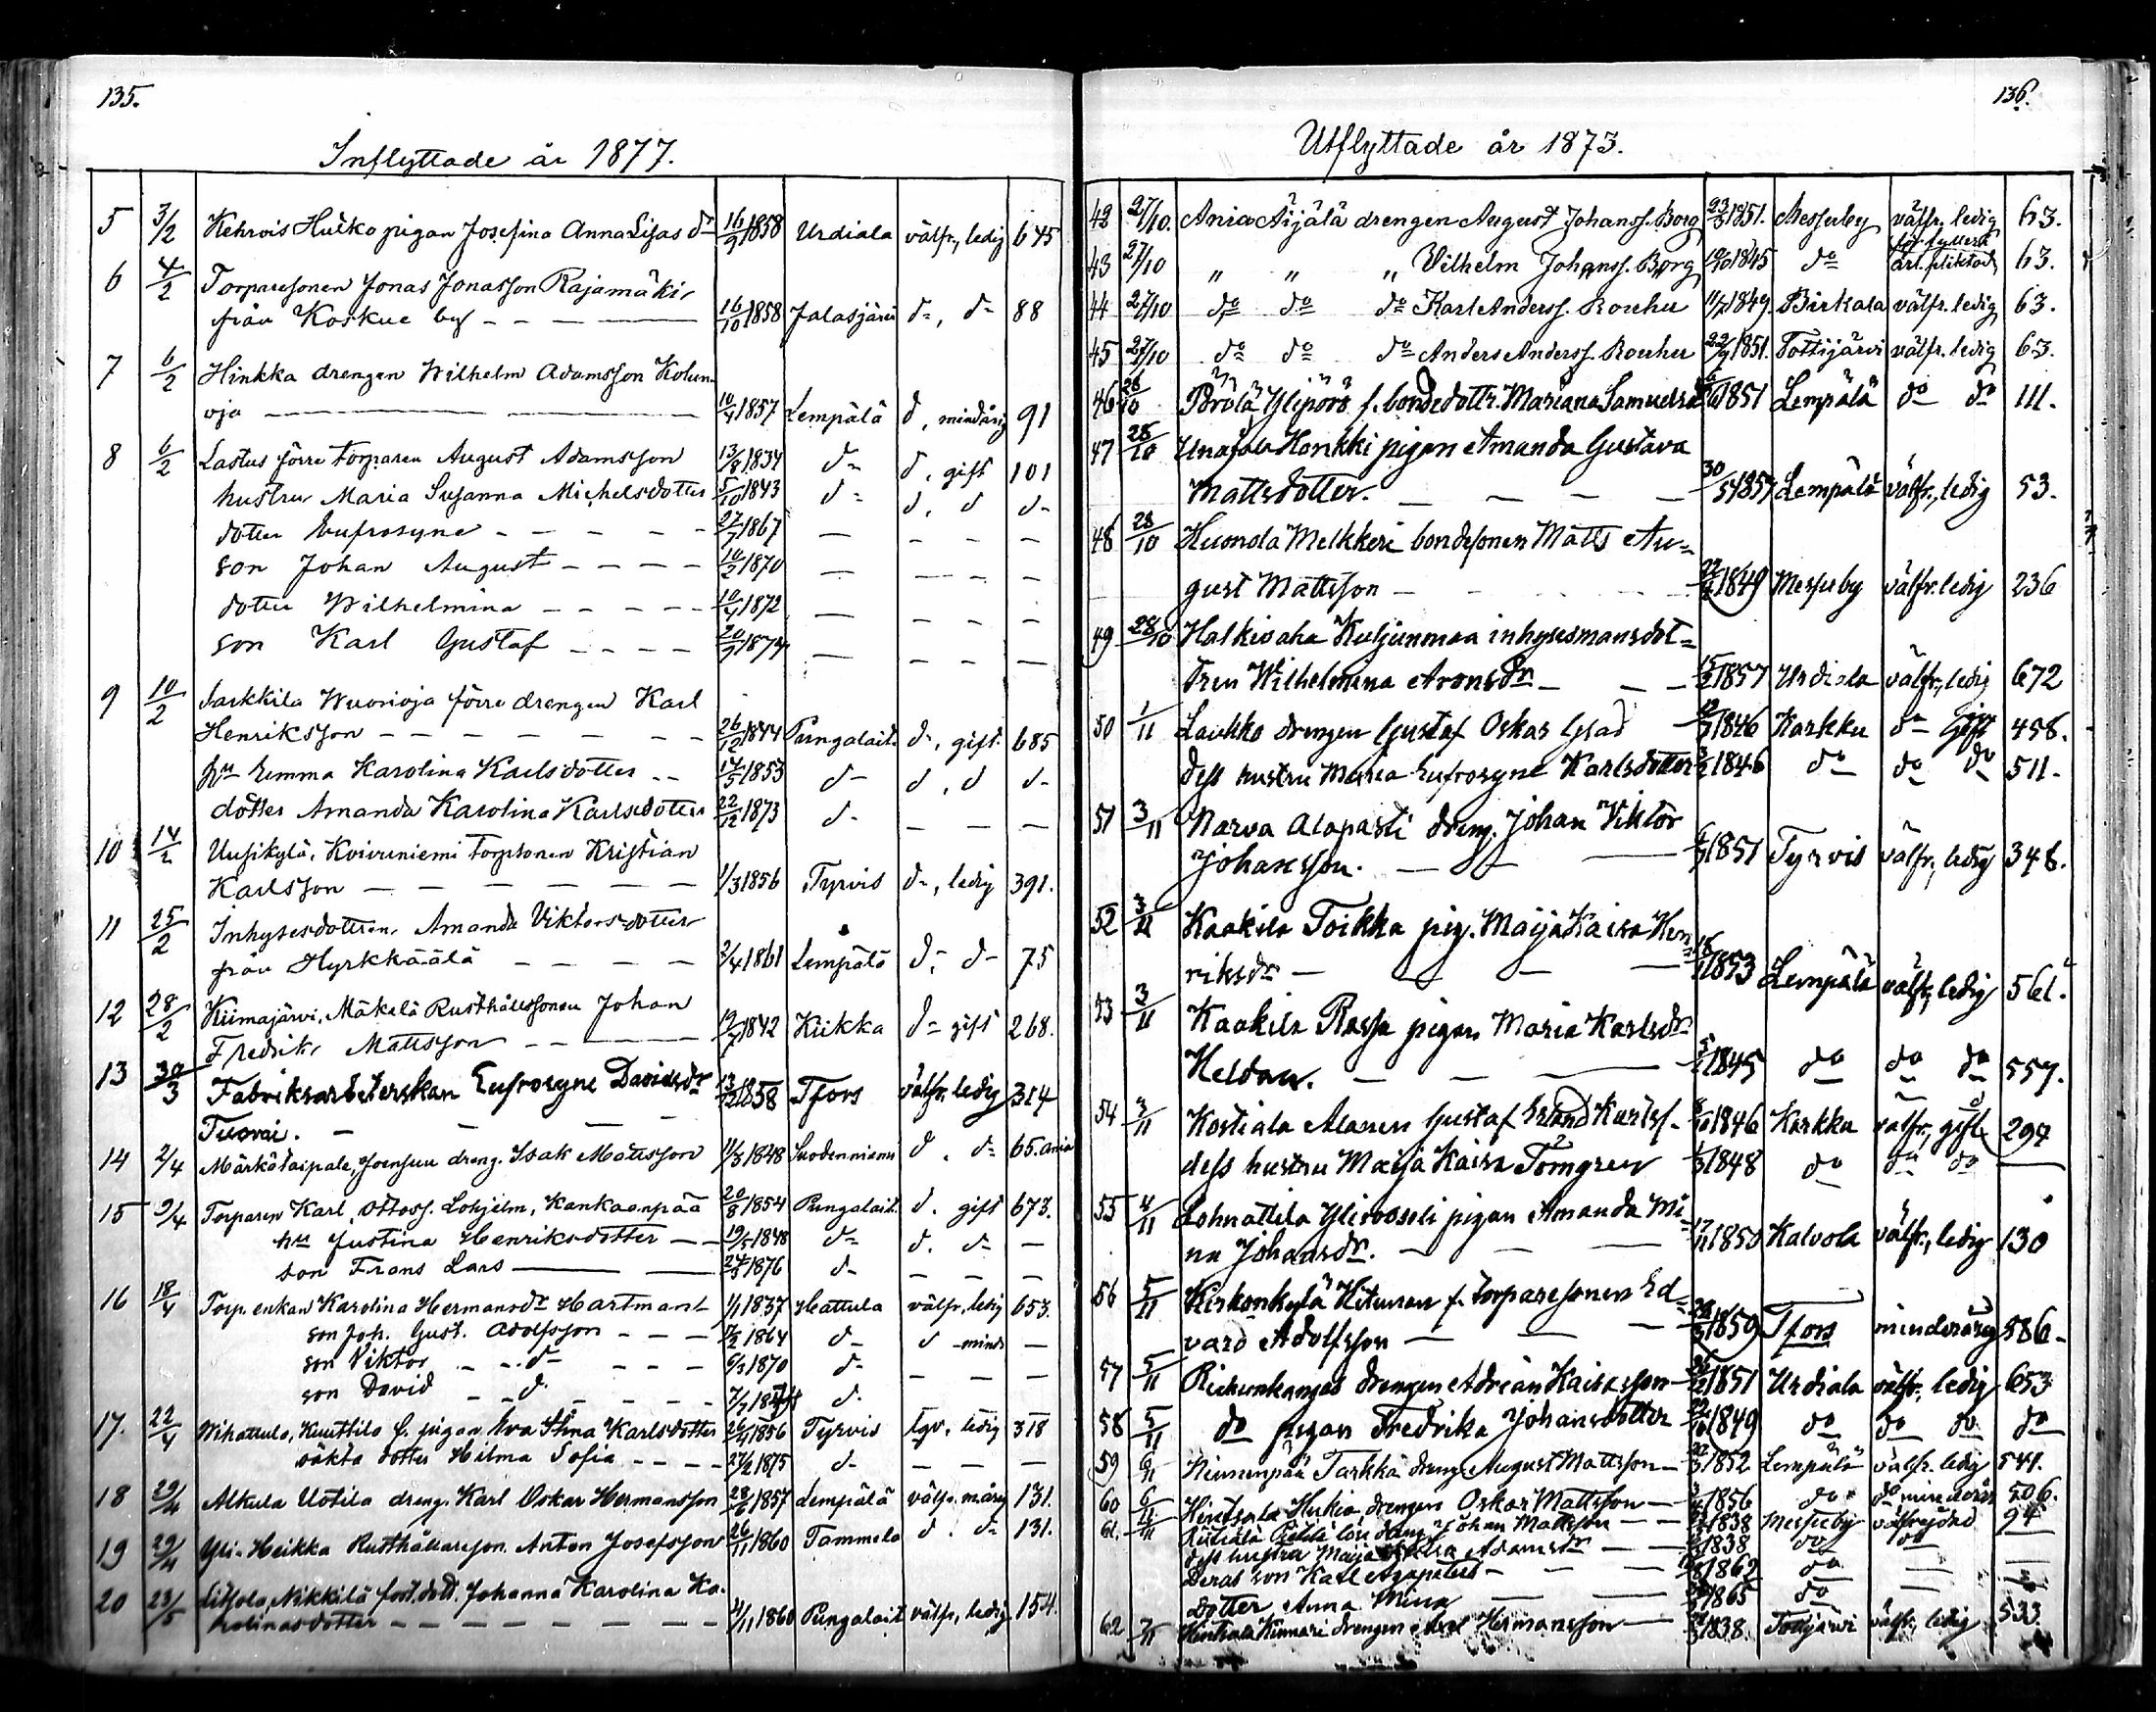 135.
Inflyttade år 1877.
5 3/2 Kehrois Hulko pigan Josefina Anna Lisas dr 16/9 1858 Urdiala välfr., ledig 645
6 4/2 Torparesonen Jonas Jonasson Rajamäki
från Koskue by 16/10 1858 Jalasjärvi do, do 88
7 6/2 Hinkka drengen Wilhelm Adamsson Kolun-
oja 10/4 1857 Lempälä d, mindårig 91
8 6/2 Lastus förre torparen August Adamsson 13/8 1834 do d. gift 101
hustru Maria Susanna Michelsdotter 5/10 1843 d- d. d d-
dotter Eufrosyne 27/7 1867 — — — —
son Johan August 10/2 1870 — — — —
dotter Wilhelmina 10/4 1872 — — — —
son Karl Gustaf 20/7 1874 — — — —
9 10/2 Sarkkila Wuorioja förre drengen Karl
Henriksson 26/12 1844 Pungalait. d-, gift. 685
hu Emma Karolina Karlsdotter 14/5 1853 d- d, d d-
dotter Amanda Karolina Karlsdotter 22/12 1873 d- — —
10 14/2 Uusikylä, Koivuniemi torpsonen Kristian
Karlsson 1/3 1856 Tyrvis d-, ledig 391.
11 25/2 Inhysesdottren Amanda Viktorsdotter
från Hyrkkäälä 2/4 1861 Lempälä d-, d- 75
12 28/2 Kiimajärvi, Mäkelä Rusthållssonen Johan
Fredrik Mattsson 19/7 1842 Kiikka d- gift 268.
13 30/3 Fabriksarbeterskan Eufrosyne Davidsdr 13/12 1858 Tfors välfr. ledig 314
Tuovai.
14 2/4 Märkätaipale, Joensuu dreng. Isak Mattsson 11/3 1848 Suodenniemi d. d- 65. ania
15 9/4 Torparen Karl Ottoss. Lohjelm, Kankaanpää 20/8 1854 Pungalait. d. gift 673.
hu Justina Henriksdotter 19/5 1848 d- d. d- —
son Frans Lars 24/3 1876 d- — — —
16 18/4 Torp. enkan Karolina Hermansdr Hartman 1/1 1837 Hattula välfr., ledig 653.
son Joh. Gust. Adolfsson 1864 d- d - mind —
son Viktor d- 6/3 1870 d- — — —
son David d- d-
17. 22/4 Wihattula, Kuuttila f. pigan Eva Stina Karlsdotter 1856 Tyrvis lgv. ledig 318
oäkta dotter Hilma Sofia 27/2 1875 d- — — —
18 29/4 Alkula Uotila dreng. Karl Oskar Hermansson 28/6 1857 Lempälä välfr. mårig 131.
19 29/4 Yli-Heikka Rusthållareson. Anton Josefsson 26/11 1860 Tammela d. d- 131.
20 23/5 Nikkilä fost.dott. Johanna Karolina Ka-
rolinasdotter 4/11 1860 Pungalait välfr., ledig 154.
136.
Utflyttade år 1873.
42 27/10. Ania Äijälä drengen August Johanss. Borg 23/3 1851. Messuby välfr. ledig 63.
43 27/10 „ „ „ Vilhelm Johanss. Borg 1845 do för fylleri arl. pliktad 63.
44 27/10 do do do Karl Anderss. Rouhu 11/7 1849. Birkala välfr. ledig 63.
45 27/10 do do do Anders Anderss. Rouhu 22/9 1851. Tottijärvi välfr. ledig 63.
46 28/10 Pörölä Ylipörö f. bondedottr. Mariana Samuelsdr 1851 Lempälä do do 111.
47 28/10 Honkki pigan Amanda Gustava
Mattsdotter. 30/5 1857 Lempälä välfr., ledig 53.
48 28/10 Huonola Melkkeri bondesonen Matts Au-
gust Mattsson 1849 Messuby välfr. ledig 236
49 28/10 Halkivaha Kuljunmaa inhysesmansdot-
tren Wilhelmina Aronsdr 15/2 1857 Urdiala välfr., ledig 672
50 1/11 Laukko drengen Gustaf Oskar Grad 1846 Karkku do gift 458.
dess hustru Maria Eufrosyne Karlsdotter 3/2 1846 do do do 511.
51 3/11 Narva Alapasti dreng. Johan Viktor
Johansson. 1851 Tyrvis välfr., ledig 348.
52 3/11 Kaakila Toikka pig. Maija Kaisa Hen-
riksdr 1853 Lempälä välfr., ledig 561.
53 3/11 Kaakila Rassa pigan Maria Karlsdr
Heldan. 1845 do do do 557.
54 3/11 Kostiala Alanen Gustaf Erland Karlss. 1846 Karkku välfr., gift 297
dess hustru Maija Kaisa Tomgren 1848 do do do —
55 4/11 Lohnattila Ylivooseli pigan Amanda Mi-
na Johansdr. 17/11 1850 Kalvola välfr., ledig 130
56 5/11 Kirkonkylä Hituman f. torparesonen Ed-
vard Adolfsson 1859 Tfors minderårig 586
57 5/11 Riihunkangas drengen Adrian Kaisasson 1851 Urdiala välfr. ledig 653
58 5/11 do pigan Fredrika Johansdotter 1849 do do do do
59 6/11 Ninnenpää Tarkka dreng. August Mattsson 1852 Lempälä välfr. ledig 541.
60 6/11 Hintsala Hukia, drengen Oskar Mattsson 1856 do do minderårig 506.
61. 6/11 dreng Johan Mattsson 1838 Messuby 94
dess hustru Maija Adamsdr 1838 do do
Deras son Karl Agapetus 1862 do — —
dotter Anna Mina 1865 do — —
62 7/11 Hintsala Kinnari drengen Axel Hermansson 1838 Tottijärvi välfr., ledig 533